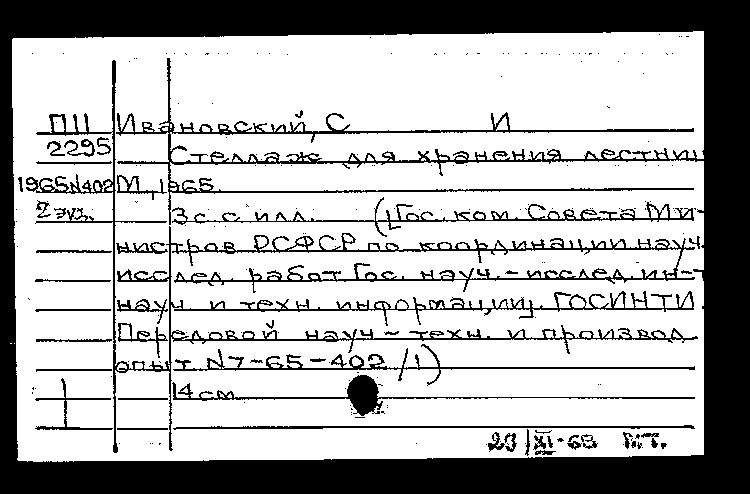 П11 Ивановский, С И
2295 Стеллаж для хранения лестниц
1965N402 М., 1965.
2 экз. 3 с. с илл. (Гос. ком. Совета Ми-
нистров РСФСР по координации науч.
исслед. работ Гос. науч.-исслед. ин-т
науч. и техн. информации. ГОСИНТИ.
Передовой науч-техн. и производ.
опыт. N7-65-402/1)
14 см
XI-68 МТ.